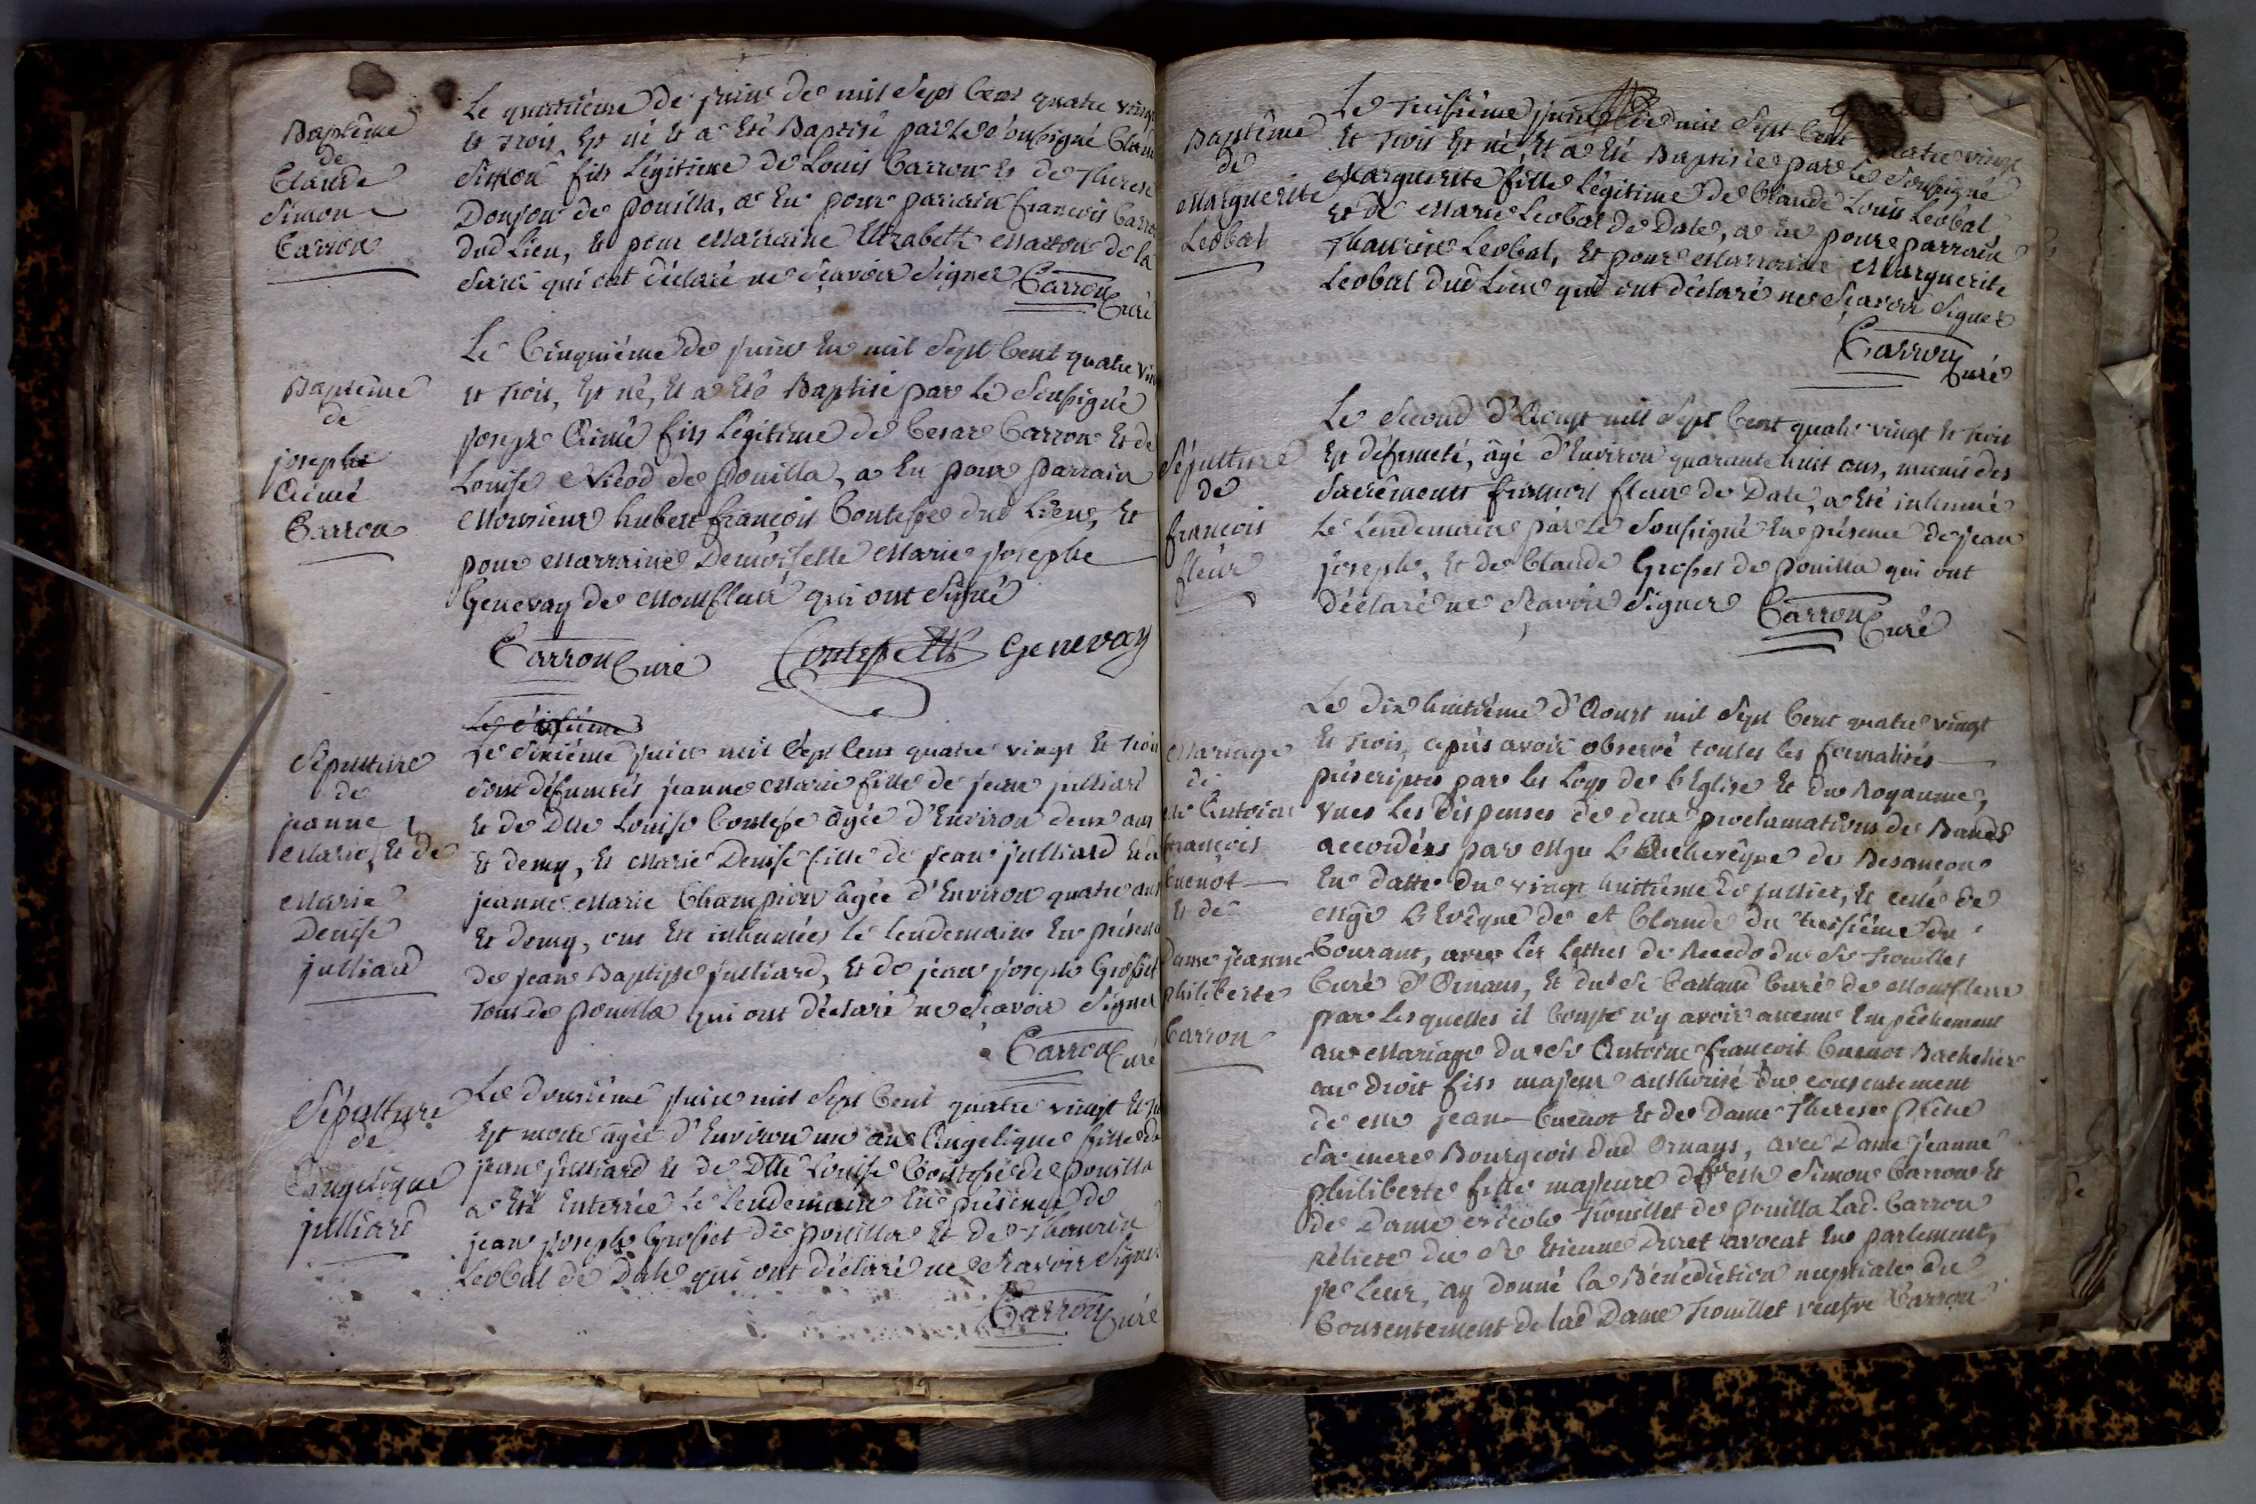 Baptême
de
Claude
Simon
Carron
Le quatrième de juin de mil Sept Cent quatre vingt
et trois, Est né et a Eté Baptisé par Le soussigné Claude
Simon fils Légitime de Louis Carron et de Therese
Donjon de pouilla, a Eu pour parrain françois Carron
dud Lieu, et pour Marraine Elizabeth Maitrot de la
Serra qui ont déclaré ne Sçavoir Signer Carron
Curé
Baptême
de
josephe
Aimé
Carron
Le Cinquième de juin En mil Sept Cent quatre vin
et trois, Est né, Et a Eté Baptisé par Le Soussigné
joseph Aimé fils Légitime de Cesar Carron Et de
Louise Nicod de Pouilla, a Eu pour parrain
Monsieur hubert françois Contesse dud Lieu, Et
pour Marraine Demoiselle Marie josephe
Genevay de Montfleur qui ont Signé
Carron Curé Contesse Genevay
Le dixième
Sépulture
de
jeanne
Marie, Et de
Marie
Denise
julliard
Le dixième juin mil Sept Cent quatre vingt Et trois
sont défuntées jeanne Marie fille de jean julliard
Et de Dlle Louise Contesse âgée d'Environ deux ans
Et demy, Et Marie Denise fille de jean julliard Et de
jeanne Marie Champion âgée d'Environ quatre ans
Et demy, ont Eté inhumées le lendemain En présence
de jean Baptiste julliard, Et de jean joseph Grosset
tous de pouilla qui ont déclaré ne Sçavoir Signer
Carron Curé
Sépulture
de
Angelique
julliard
Le douzième juin mil Sept Cent quatre vingt Et
Est morte âgée d'Environ un an Angelique fille de
jean julliard Et de Dlle Louise Contesse de pouilla
a Eté Enterrée Le Lendemain En présence de
jean joseph Grosset de pouilla Et de Thaurin
Leobal de Dale qui ont déclaré ne Sçavoir Signer
Carron Curé
Baptême
de
Marguerite
Leobal
Le troisième juin de mil Sept Cent quatre vingt
Et trois Est né, Et a Eté Baptisée par Le Soussigné
Marguerite fille Légitime de Claude Louis Leobal
Et de Marie Leobal de Dale, a Eu pour parrain
Thaurin Leobal, Et pour Marraine Marguerite
Leobal dud Lieu qui ont déclaré ne Sçavoir Signer
Carron
Curé
Sépulture
de
françois
fleur
Le Second d'Aoust mil Sept Cent quatre vingt Et trois
Est défuncté, âgé d'Environ quarante huit ans, muni des
Sacrements françois fleur de Dale, a Eté inhumé
Le Lendemain par Le Soussigné En présence de jean
joseph, Et de Claude Grosset de pouilla qui ont
déclaré ne Sçavoir Signer Carron Curé
Mariage
de
Mr Antoine
françois
Cuenot
Et de
Dame jeanne
philiberte
Carron
Le dix huitième d'Aoust mil Sept Cent quatre vingt
Et trois, après avoir observé toutes les formalités
préscriptes par les Loys de l'Eglise Et du Royaume,
vues Les Dispenses de deux proclamations de Bands
accordées par Mgr L'Archevêque de Besançon
En datte du vingt huitième de juillet, Et celle de
Mgr L'Evêque de St Claude du treizième du
Courant, avec Les Lettres de Recedo du Sr Trouillet
Curé d'Ornans, Et du Sr Cattand Curé de Montfleur
par Lesquelles il Conste n'y avoir aucun Empêchement
au Mariage du Sr Antoine françois Cuenot Bachelier
au Droit fils majeur authorisé du consentement
de Mr jean Cuenot Et de Dame Therese Prêtre
Sa mere Bourgeois dud Ornans, avec Dame jeanne
philiberte fille majeure de fut Mr Simon Carron Et
de Dame Nicole Trouillet de pouilla Lad. Carron
relicte du Sr Etienne Duret avocat En parlement,
je Leur ay donné la Bénédiction nuptiale du
Consentement de lad Dame Trouillet veufve Carron